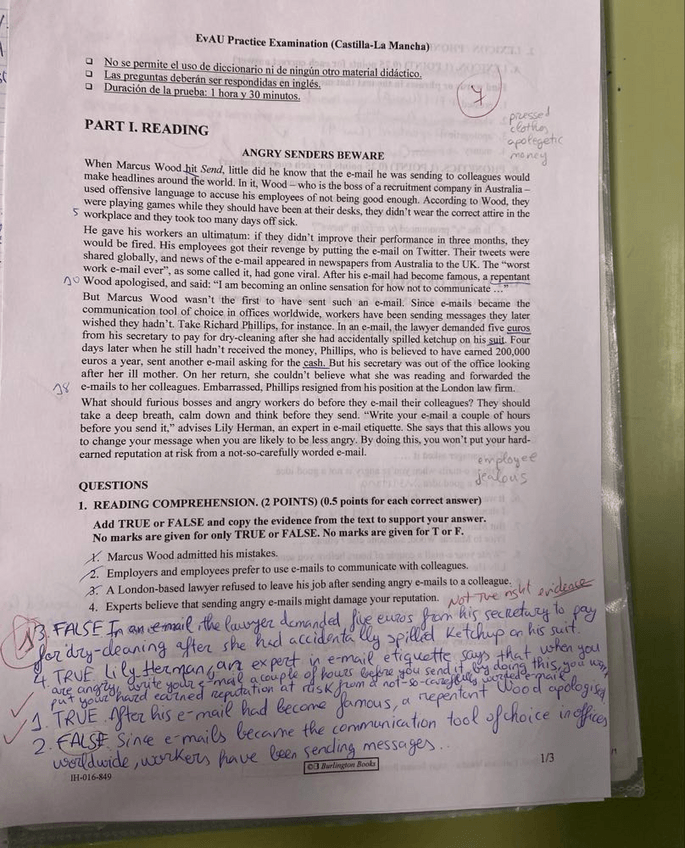 EvAU Practice Examination (Castilla-La Mancha)
No se permite el uso de diccionario ni de ningún otro material didáctico.
Las preguntas deberán ser respondidas en inglés.
Duración de la prueba: 1 hora y 30 minutos.
7
pressed
clothes
apotegetic
money
PART I. READING
ANGRY SENDERS BEWARE
When Marcus Wood hit Send, little did he know that the e-mail he was sending to colleagues would
make headlines around the world. In it, Wood – who is the boss of a recruitment company in Australia –
used offensive language to accuse his employees of not being good enough. According to Wood, they
were playing games while they should have been at their desks, they didn't wear the correct attire in the
5 workplace and they took too many days off sick.
He gave his workers an ultimatum: if they didn't improve their performance in three months, they
would be fired. His employees got their revenge by putting the e-mail on Twitter. Their tweets were
shared globally, and news of the e-mail appeared in newspapers from Australia to the UK. The "worst
work e-mail ever", as some called it, had gone viral. After his e-mail had become famous, a repentant
10 Wood apologised, and said: "I am becoming an online sensation for how not to communicate ..."
But Marcus Wood wasn't the first to have sent such an e-mail. Since e-mails became the
communication tool of choice in offices worldwide, workers have been sending messages they later
wished they hadn't. Take Richard Phillips, for instance. In an e-mail, the lawyer demanded five euros
from his secretary to pay for dry-cleaning after she had accidentally spilled ketchup on his suit. Four
days later when he still hadn't received the money, Phillips, who is believed to have earned 200,000
euros a year, sent another e-mail asking for the cash. But his secretary was out of the office looking
after her ill mother. On her return, she couldn't believe what she was reading and forwarded the
18 e-mails to her colleagues. Embarrassed, Phillips resigned from his position at the London law firm.
What should furious bosses and angry workers do before they e-mail their colleagues? They should
take a deep breath, calm down and think before they send. "Write your e-mail a couple of hours
before you send it," advises Lily Herman, an expert in e-mail etiquette. She says that this allows you
to change your message when you are likely to be less angry. By doing this, you won't put your hard-
earned reputation at risk from a not-so-carefully worded e-mail.
employee
jealous
QUESTIONS
1. READING COMPREHENSION. (2 POINTS) (0.5 points for each correct answer)
Add TRUE or FALSE and copy the evidence from the text to support your answer.
No marks are given for only TRUE or FALSE. No marks are given for T or F.
1. Marcus Wood admitted his mistakes.
2. Employers and employees prefer to use e-mails to communicate with colleagues.
3. A London-based lawyer refused to leave his job after sending angry e-mails to a colleague.
4. Experts believe that sending angry e-mails might damage your reputation.
Not the right evidence
3. FALSE In an e-mail, the lawyer demanded five euros from his secretary to pay
for dry-cleaning after she had accidentally spilled ketchup on his suit.
4 TRUE Lily Herman, an expert in e-mail etiquette says that when you
are angry, write your e-mail a couple of hours before you send it, by doing this, you won,
put your hard earned reputation at risk from a not-so-carefully worded e-mail
1. TRUE. After his e-mail had become famous, a repentant Wood apologised
2. FALSE. Since e-mails became the communication tool of choice in offices
worldwide, workers have been sending messages..
1/3
© Burlington Books
IH-016-849